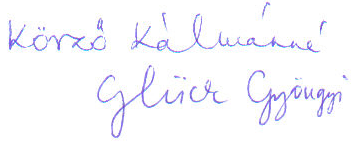 Körző Kálmánné
Glück Gyöngyi